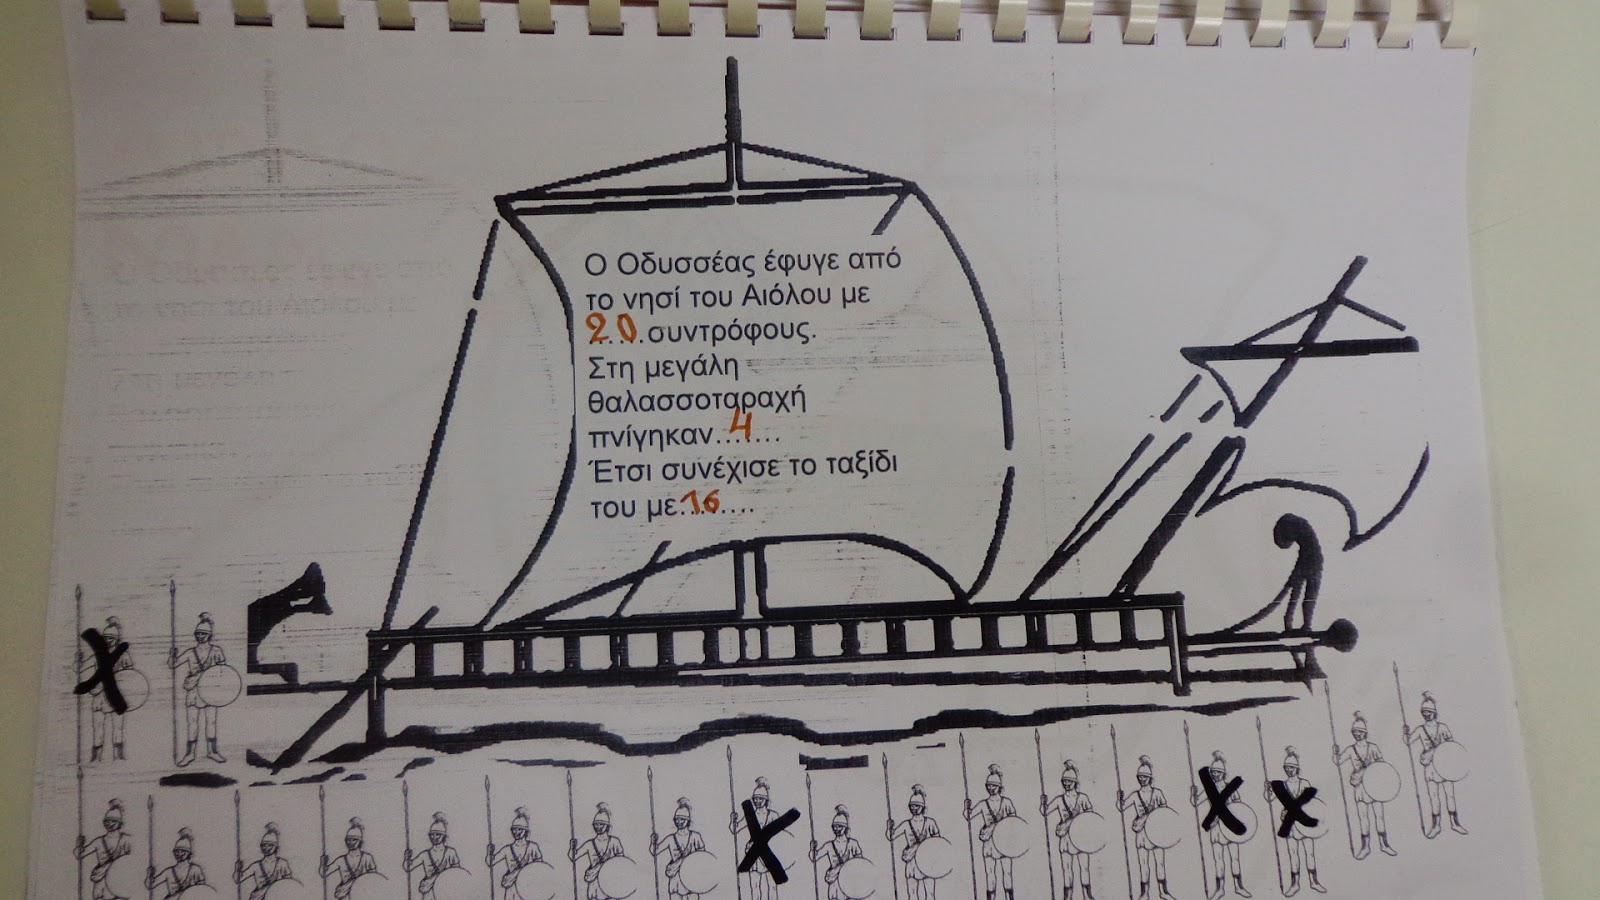 Ο Οδυσσέας έφυγε από
το νησί του Αιόλου με
20 συντρόφους.
Στη μεγάλη
θαλασσοταραχή
πνίγηκαν...4....
Έτσι συνέχισε το ταξίδι
του με.16....